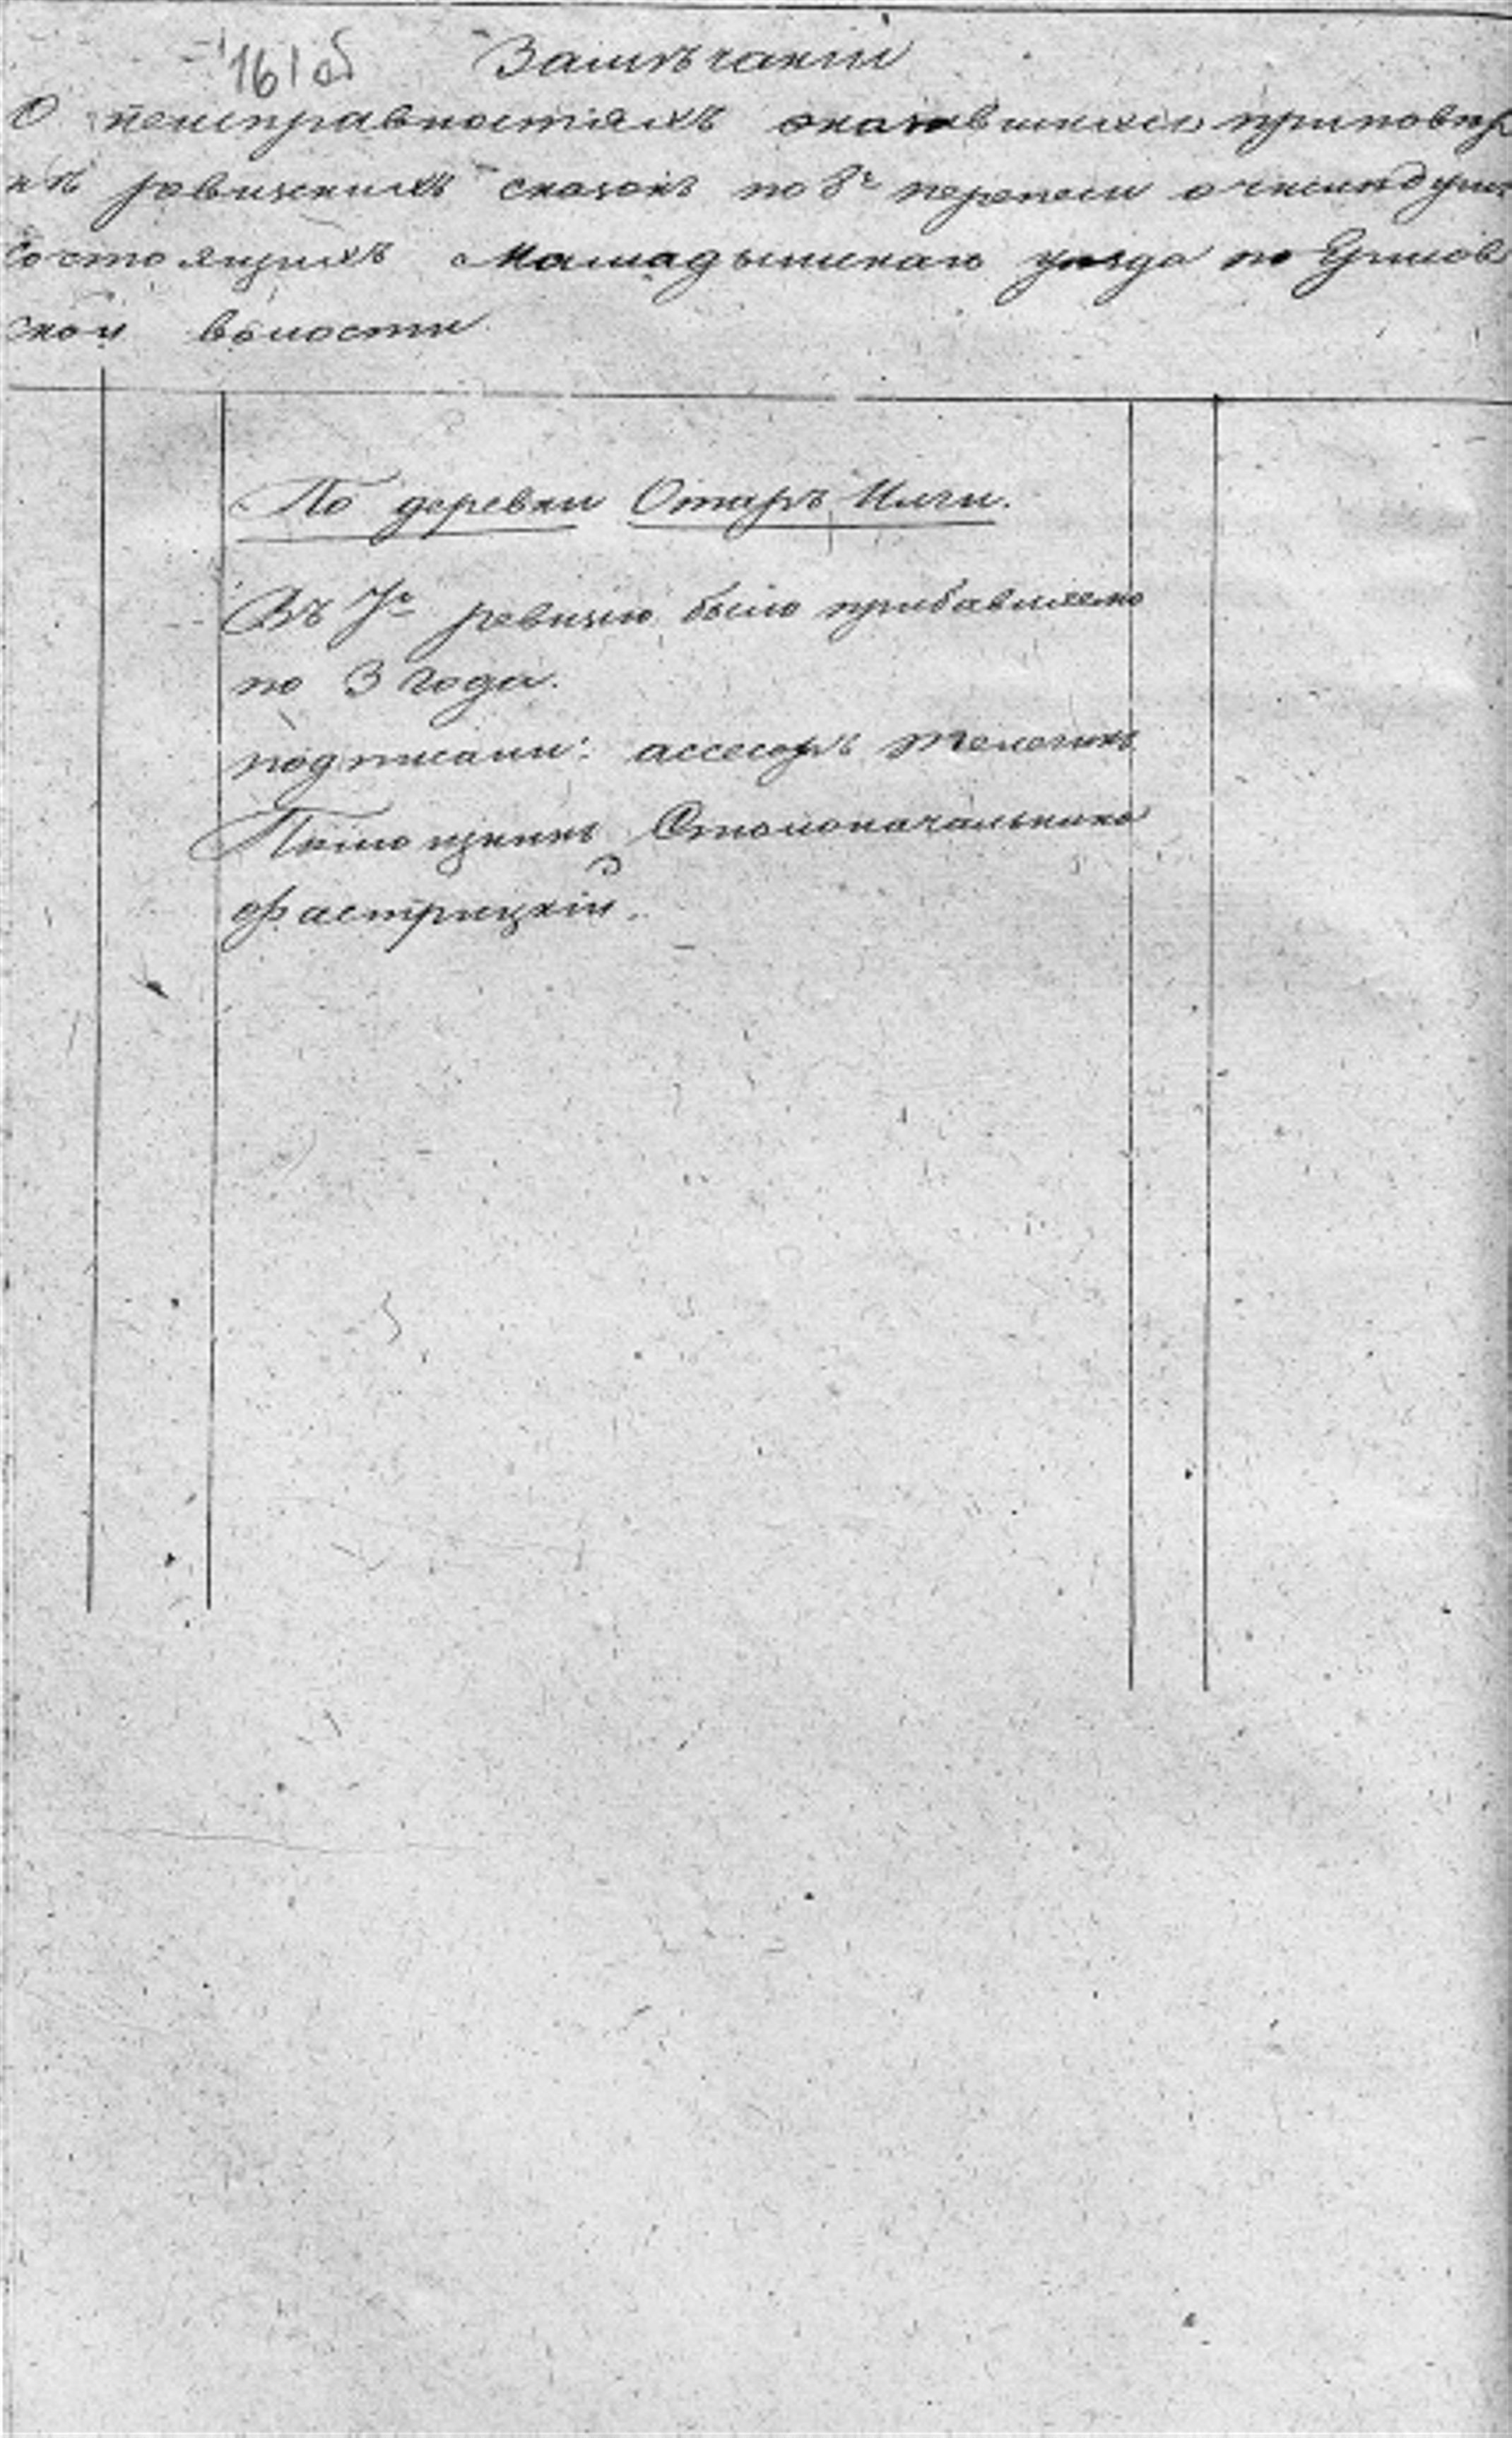 161 об
Замѣчании
О неисправностяхъ оказавшихся приповѣр
кѣ ревизскихъ сказокъ по 8й переписи о числѣ душъ
состоящихъ Мамадышскаго уѣзда по
ской волости
По деревни Отаръ Илги.
Въ 7ю ревизiю было прибавляемо
по 3 года.
подписали: ассесоръ
Помощникъ Столоначальника